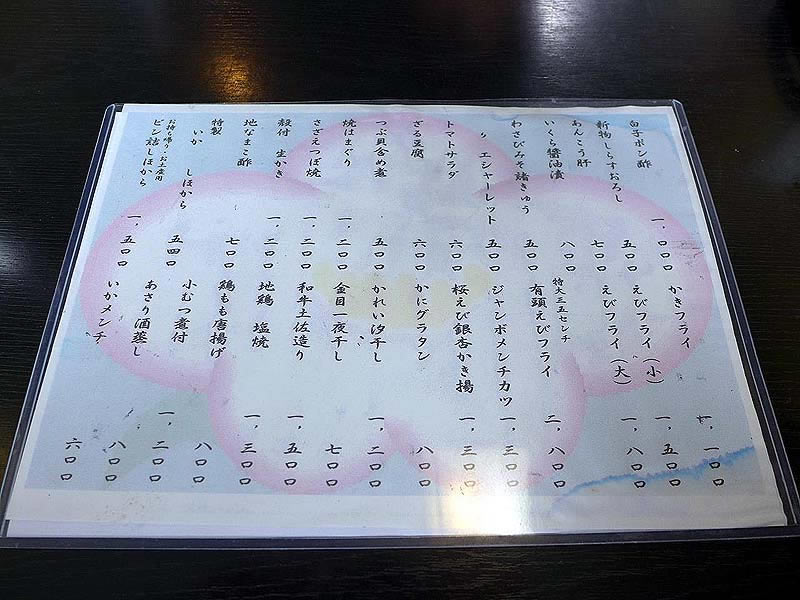 白子ポン酢 一、〇〇〇
新物しらすおろし 五〇〇
あんこう肝 七〇〇
いくら醤油漬 八〇〇
わさびみそ諸きゅう 五〇〇
〃 エシャーレット 五〇〇
トマトサラダ 六〇〇
ざる豆腐 六〇〇
つぶ貝含め煮 五〇〇
焼はまぐり 一、二〇〇
さざえつぼ焼 一、二〇〇
殻付 生かき 一、二〇〇
地なまこ酢 七〇〇
特製
いか しほから 五四〇
お持ち帰り・お土産用
ビン詰しほから 一、五〇〇
かきフライ 一、一〇〇
えびフライ（小） 一、五〇〇
えびフライ（大） 一、八〇〇
特大三五センチ
有頭えびフライ 二、八〇〇
ジャンボメンチカツ 一、三〇〇
桜えび銀杏かき揚 一、三〇〇
かにグラタン 八〇〇
かれい汐干し 一、二〇〇
金目一夜干し 七〇〇
和牛土佐造り 一、五〇〇
地鶏 塩焼 一、三〇〇
鶏もも唐揚げ 八〇〇
小むつ煮付 一、二〇〇
あさり酒蒸し 八〇〇
いかメンチ 六〇〇